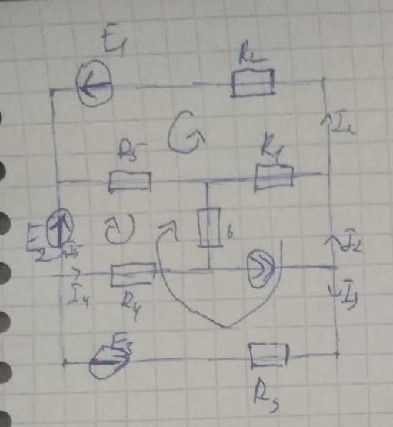 E1 R2
I1
R5 R1
E2 I5 6 I2
I4 R4 I3
E3
R3